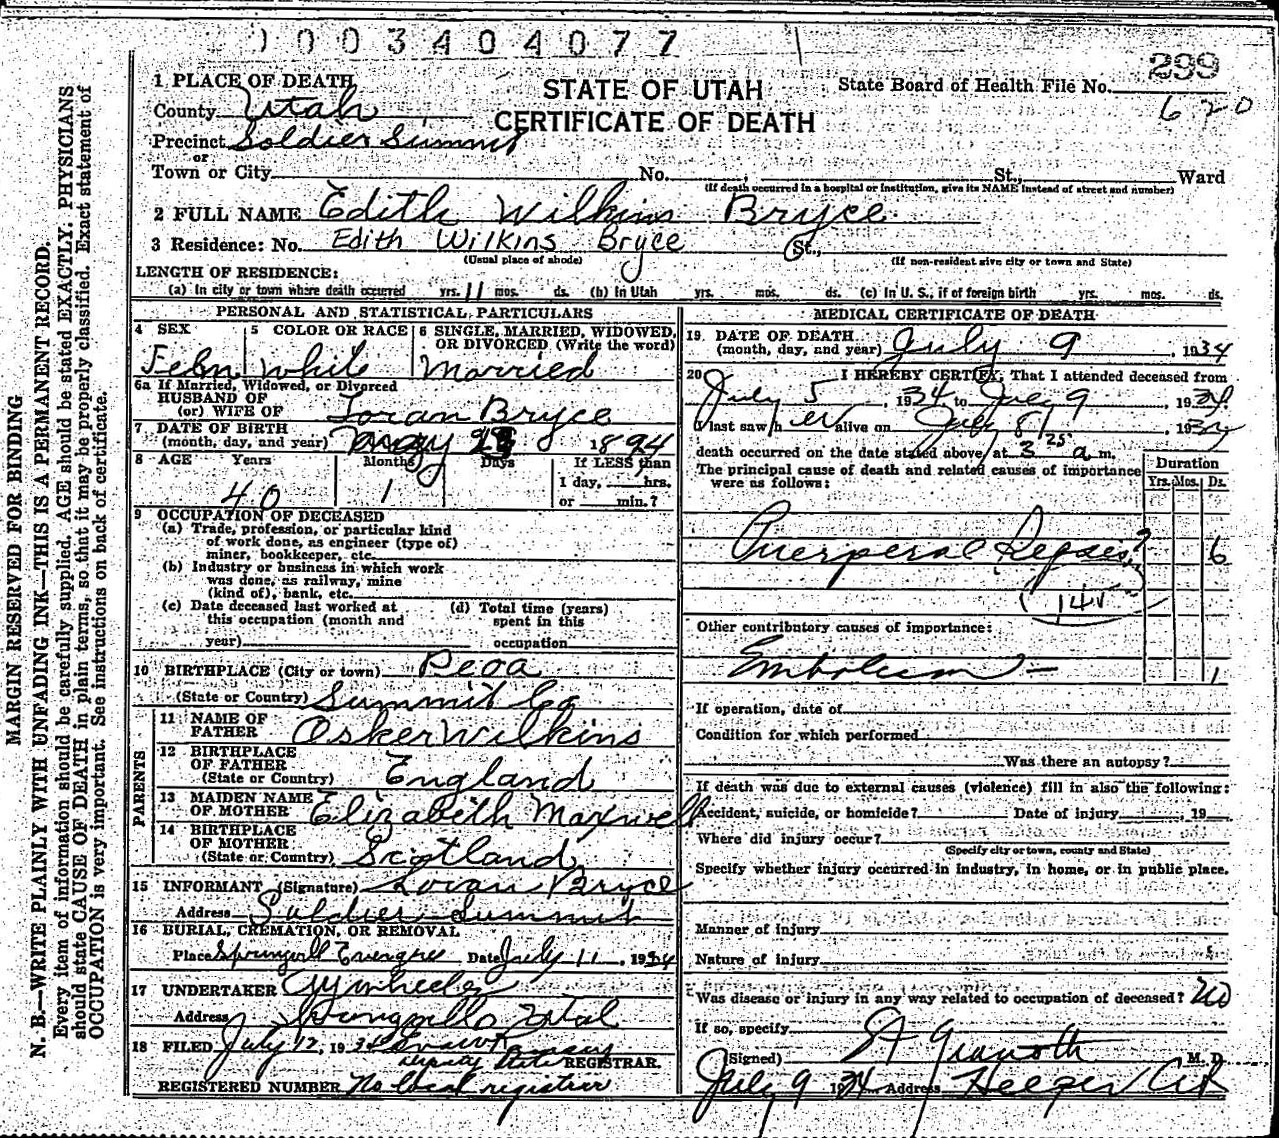 1003404077
299
1 PLACE OF DEATH
STATE OF UTAH
State Board of Health File No.
County Utah
CERTIFICATE OF DEATH
620
Precinct Soldier Summit
or
Town or City No. , St., Ward
(If death occurred in a hospital or institution, give its NAME instead of street and number)
2 FULL NAME Edith Wilkins Bryce
3 Residence: No. Edith Wilkins Bryce St.,
(Usual place of abode) (If non-resident give city or town and State)
LENGTH OF RESIDENCE:
(a) In city or town where death occurred yrs. 11 mos. ds. (b) In Utah yrs. mos. ds. (c) In U. S., if of foreign birth yrs. mos. ds.
PERSONAL AND STATISTICAL PARTICULARS
4 SEX 5 COLOR OR RACE 6 SINGLE, MARRIED, WIDOWED,
OR DIVORCED (Write the word)
Fem White Married
6a If Married, Widowed, or Divorced
HUSBAND OF
(or) WIFE OF Loran Bryce
7 DATE OF BIRTH
(month, day, and year) May 1894
8 AGE Years Months Days If LESS than
1 day, hrs.
40 1 or min.?
9 OCCUPATION OF DECEASED
(a) Trade, profession, or particular kind
of work done, as engineer (type of)
miner, bookkeeper, etc.
(b) Industry or business in which work
was done, as railway, mine
(kind of), bank, etc.
(c) Date deceased last worked at (d) Total time (years)
this occupation (month and spent in this
year) occupation
10 BIRTHPLACE (City or town) Peoa
(State or Country) Summit Co
PARENTS
11 NAME OF
FATHER Osker Wilkins
12 BIRTHPLACE
OF FATHER
(State or Country) England
13 MAIDEN NAME
OF MOTHER Elizabeth Maxwell
14 BIRTHPLACE
OF MOTHER
(State or Country) Scotland
15 INFORMANT (Signature) Loran Bryce
Address Soldier Summit
16 BURIAL, CREMATION, OR REMOVAL
Place Springvill Evergree Date July 11, 1934
17 UNDERTAKER Wheeler
Address Springville Utah
18 FILED July 12, 1934
Deputy State REGISTRAR.
REGISTERED NUMBER No local registrar
MEDICAL CERTIFICATE OF DEATH
19 DATE OF DEATH
(month, day, and year) July 9, 1934
20 I HEREBY CERTIFY, That I attended deceased from
July 5, 1934 to July 9, 1934
I last saw her alive on July 8, 1934
death occurred on the date stated above, at 3 25 a m.
The principal cause of death and related causes of importance
were as follows:
Duration
Yrs. Mos. Ds.
Puerperal Sepsis? 6
Other contributory causes of importance:
Embolism 1
If operation, date of
Condition for which performed
Was there an autopsy?
If death was due to external causes (violence) fill in also the following:
Accident, suicide, or homicide? Date of injury , 19
Where did injury occur?
(Specify city or town, county and State)
Specify whether injury occurred in industry, in home, or in public place.
Manner of injury
Nature of injury
Was disease or injury in any way related to occupation of deceased? no
If so, specify
(Signed) M. D.
July 9 1934 Address Helper
MARGIN RESERVED FOR BINDING
N. B.—WRITE PLAINLY WITH UNFADING INK—THIS IS A PERMANENT RECORD.
Every item of information should be carefully supplied. AGE should be stated EXACTLY. PHYSICIANS
should state CAUSE OF DEATH in plain terms, so that it may be properly classified. Exact statement of
OCCUPATION is very important. See instructions on back of certificate.